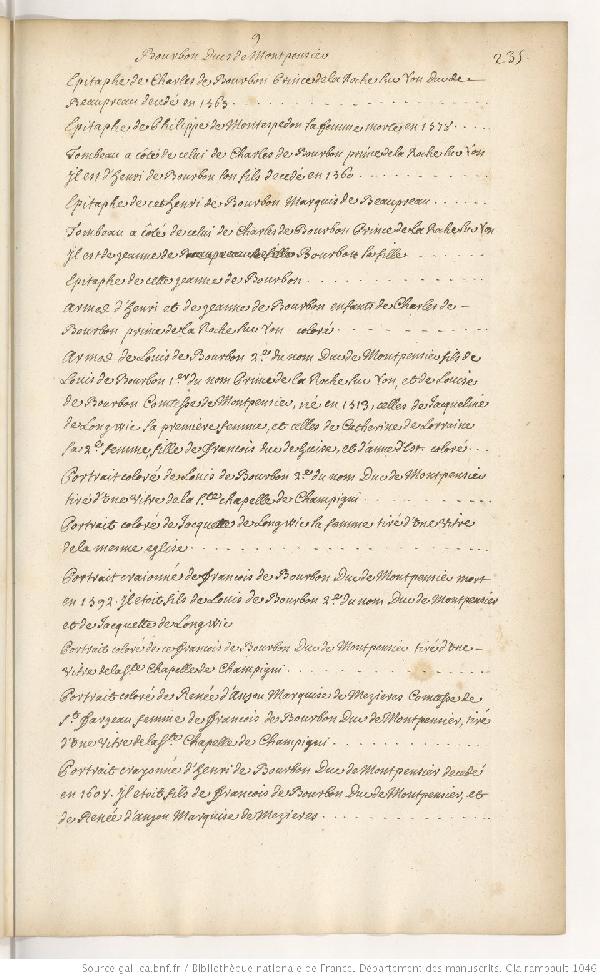 9
Bourbon Ducs de Montpensier
235
Epitaphe de Charles de Bourbon Prince de la Roche sur Yon Duc de
Beaupreau decedé en 1565
Epitaphe de Philippe de Montespedon sa femme morte en 1578
Tombeau a côté de celui de Charles de Bourbon prince de la Roche sur Yon
Il est d'henri de Bourbon son fils decedé en 1560
Epitaphe de cet henri de Bourbon Marquis de Beaupreau
Tombeau a côté de celui de Charles de Bourbon Prince de la Roche sur Yon
Il est de jeanne de Bourbon sa fille
Epitaphe de cette jeanne de Bourbon
Armes d'henri et de jeanne de Bourbon enfants de Charles de
Bourbon prince de la Roche sur Yon coloré
Armes de Louis de Bourbon 2.e du nom Duc de Montpensier fils de
Louis de Bourbon 1.er du nom Prince de la Roche sur Yon, et de Louise
de Bourbon Comtesse de Montpensier, né en 1513, celles de Jacqueline
de Longwic sa premiere femme, et celles de Catherine de Lorraine
sa 2.e femme, fille de francois duc de Guise, et d'anne d'Est coloré
Portrait coloré de Louis de Bourbon 2.e du nom Duc de Montpensier
tiré d'une vitre de la S.te chapelle de Champigni
Portrait coloré de Jacquette de Longwic sa femme tiré d'une vitre
de la mesme eglise
Portrait craionné de francois de Bourbon Duc de Montpensier mort
en 1592. Il etoit fils de Louis de Bourbon 2.e du nom Duc de Montpensier
et de Jacquette de Longwic
Portrait coloré de ce francois de Bourbon Duc de Montpensier tiré d'une
vitre de la S.te Chapelle de Champigni
Portrait coloré de Renée d'Anjou Marquise de Mezieres Comtesse de
S.t fargeau femme de francois de Bourbon Duc de Montpensier, tiré
d'une vitre de la S.te Chapelle de Champigni
Portrait crayonné d'henri de Bourbon Duc de Montpensier decedé
en 1608. Il etoit fils de francois de Bourbon Duc de Montpensier, et
de Renée d'anjou Marquise de Mezieres
Source gallica.bnf.fr / Bibliothèque nationale de France. Département des manuscrits. Clairambault 1046